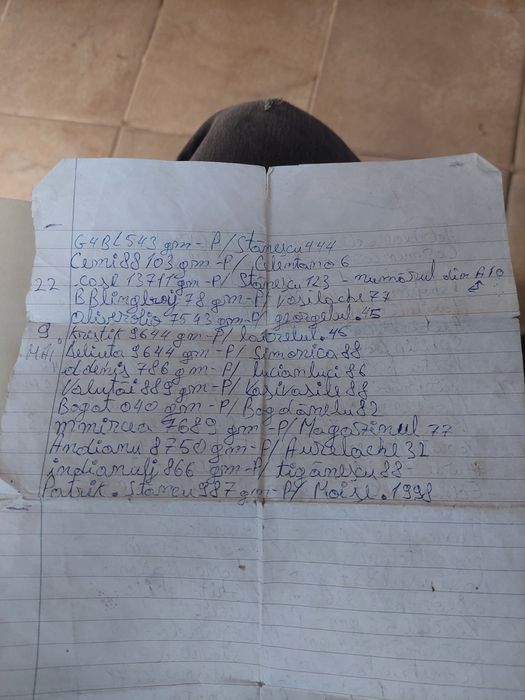 G4BL543 gm - P/ Stănescu444
Cemi88103 gm - P/ Celentano6
22 .cosl 13717 gm - P/ Stănescu123 - numărul din A10
BBlingboij78 gm - P/ Vasilache77
gm - P/ georgelul.45
9. Kristik9644 gm - P/
MAI Aeliuta9644 gm - P/ Simonica88
786 gm - P/ Lucianluci86
Valutai889 gm - P/ Vasivasile88
Bogat040 gm - P/ Bogdanelu82
mmircea7689 gm - P/ Magazinul77
Andianu8750 gm - P/ Aurelache32
indianulj866 gm - P/ tiganescu88
Patrik.Stancu987 gm - P/ Moise.1998